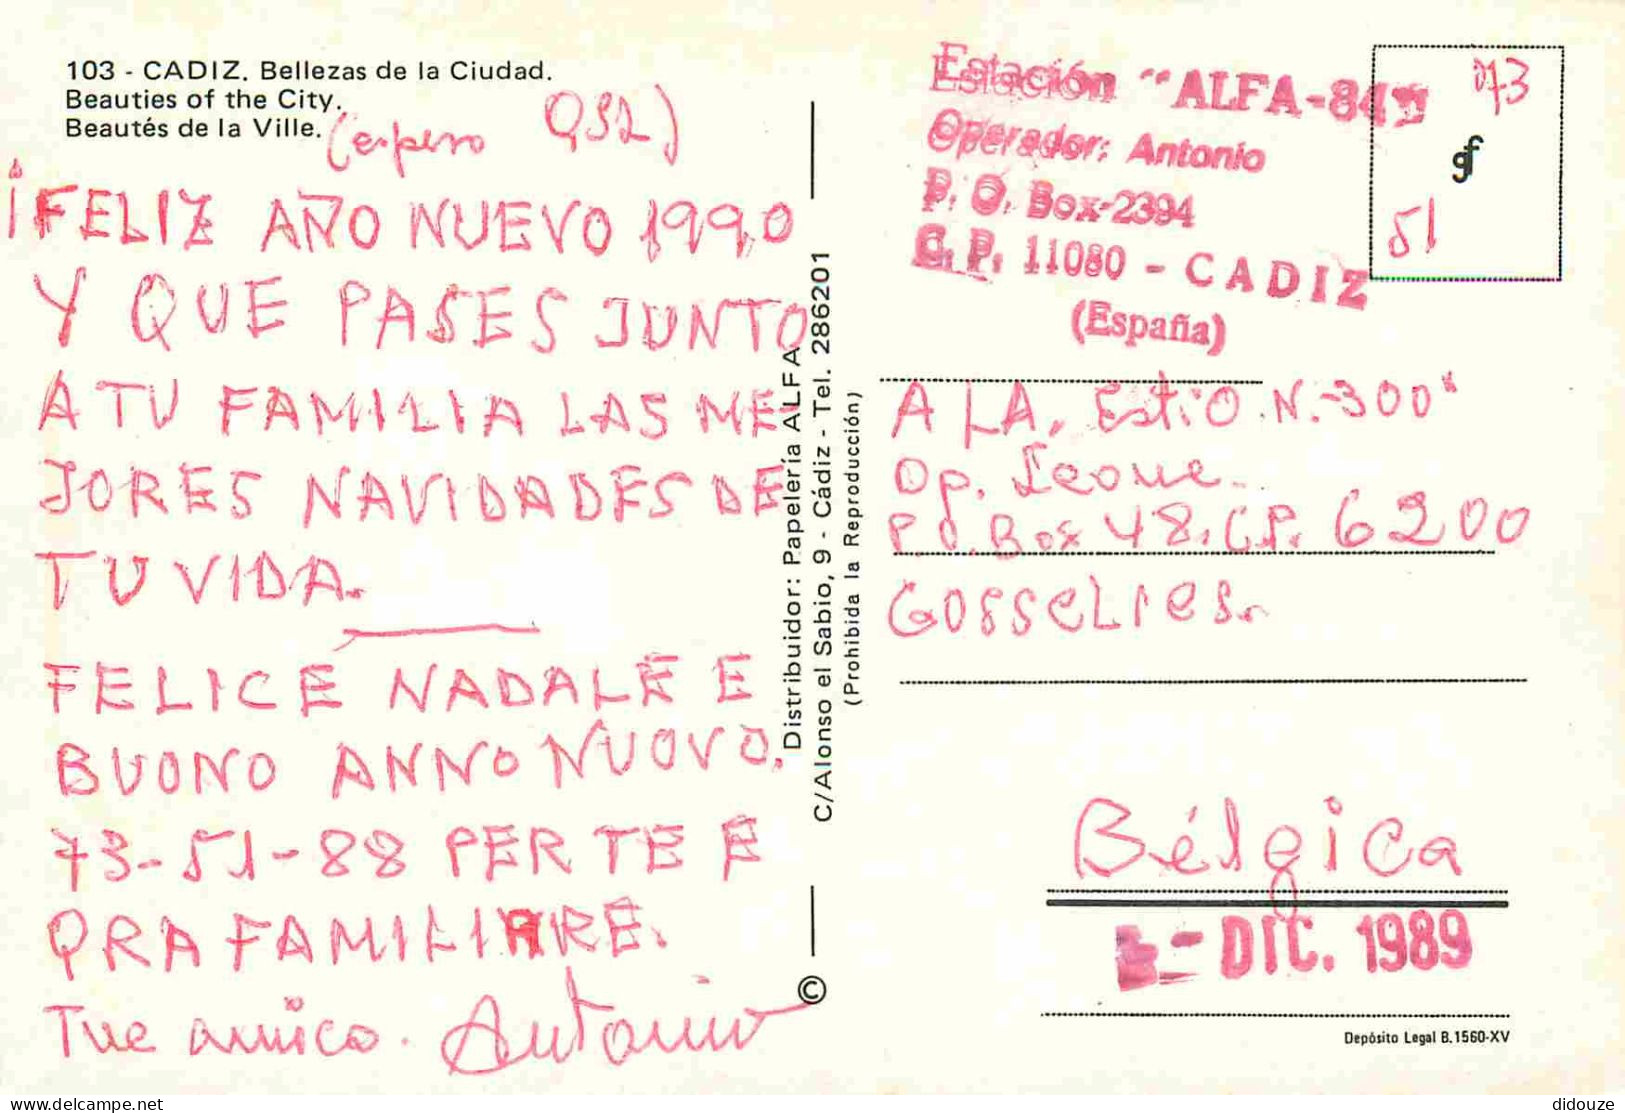 103 - CADIZ. Bellezas de la Ciudad.
Beauties of the City.
Beautés de la Ville.
(espero QSL)
¡FELIZ AÑO NUEVO 1990
Y QUE PASES JUNTO
A TU FAMILIA LAS ME
JORES NAVIDADES DE
TU VIDA.
FELICE NADALE E
BUONO ANNO NUOVO.
73-51-88 PER TE E
QRA FAMILIARE.
Tue amico. Antonio
Distribuidor: Papelería ALFA
C/Alonso el Sabio, 9 - Cádiz - Tel. 286201
(Prohibida la Reproducción)
©
Estación "ALFA-84"
Operador: Antonio
P. O. Box-2394
C. P. 11080 - CADIZ
(España)
73
gf
51
A LA, Estió N.-300"
Op. Leone.
P.O. Box 48. C.P. 6200
Gosselies.
Bélgica
- DIC. 1989
Depósito Legal B.1560-XV
didouze